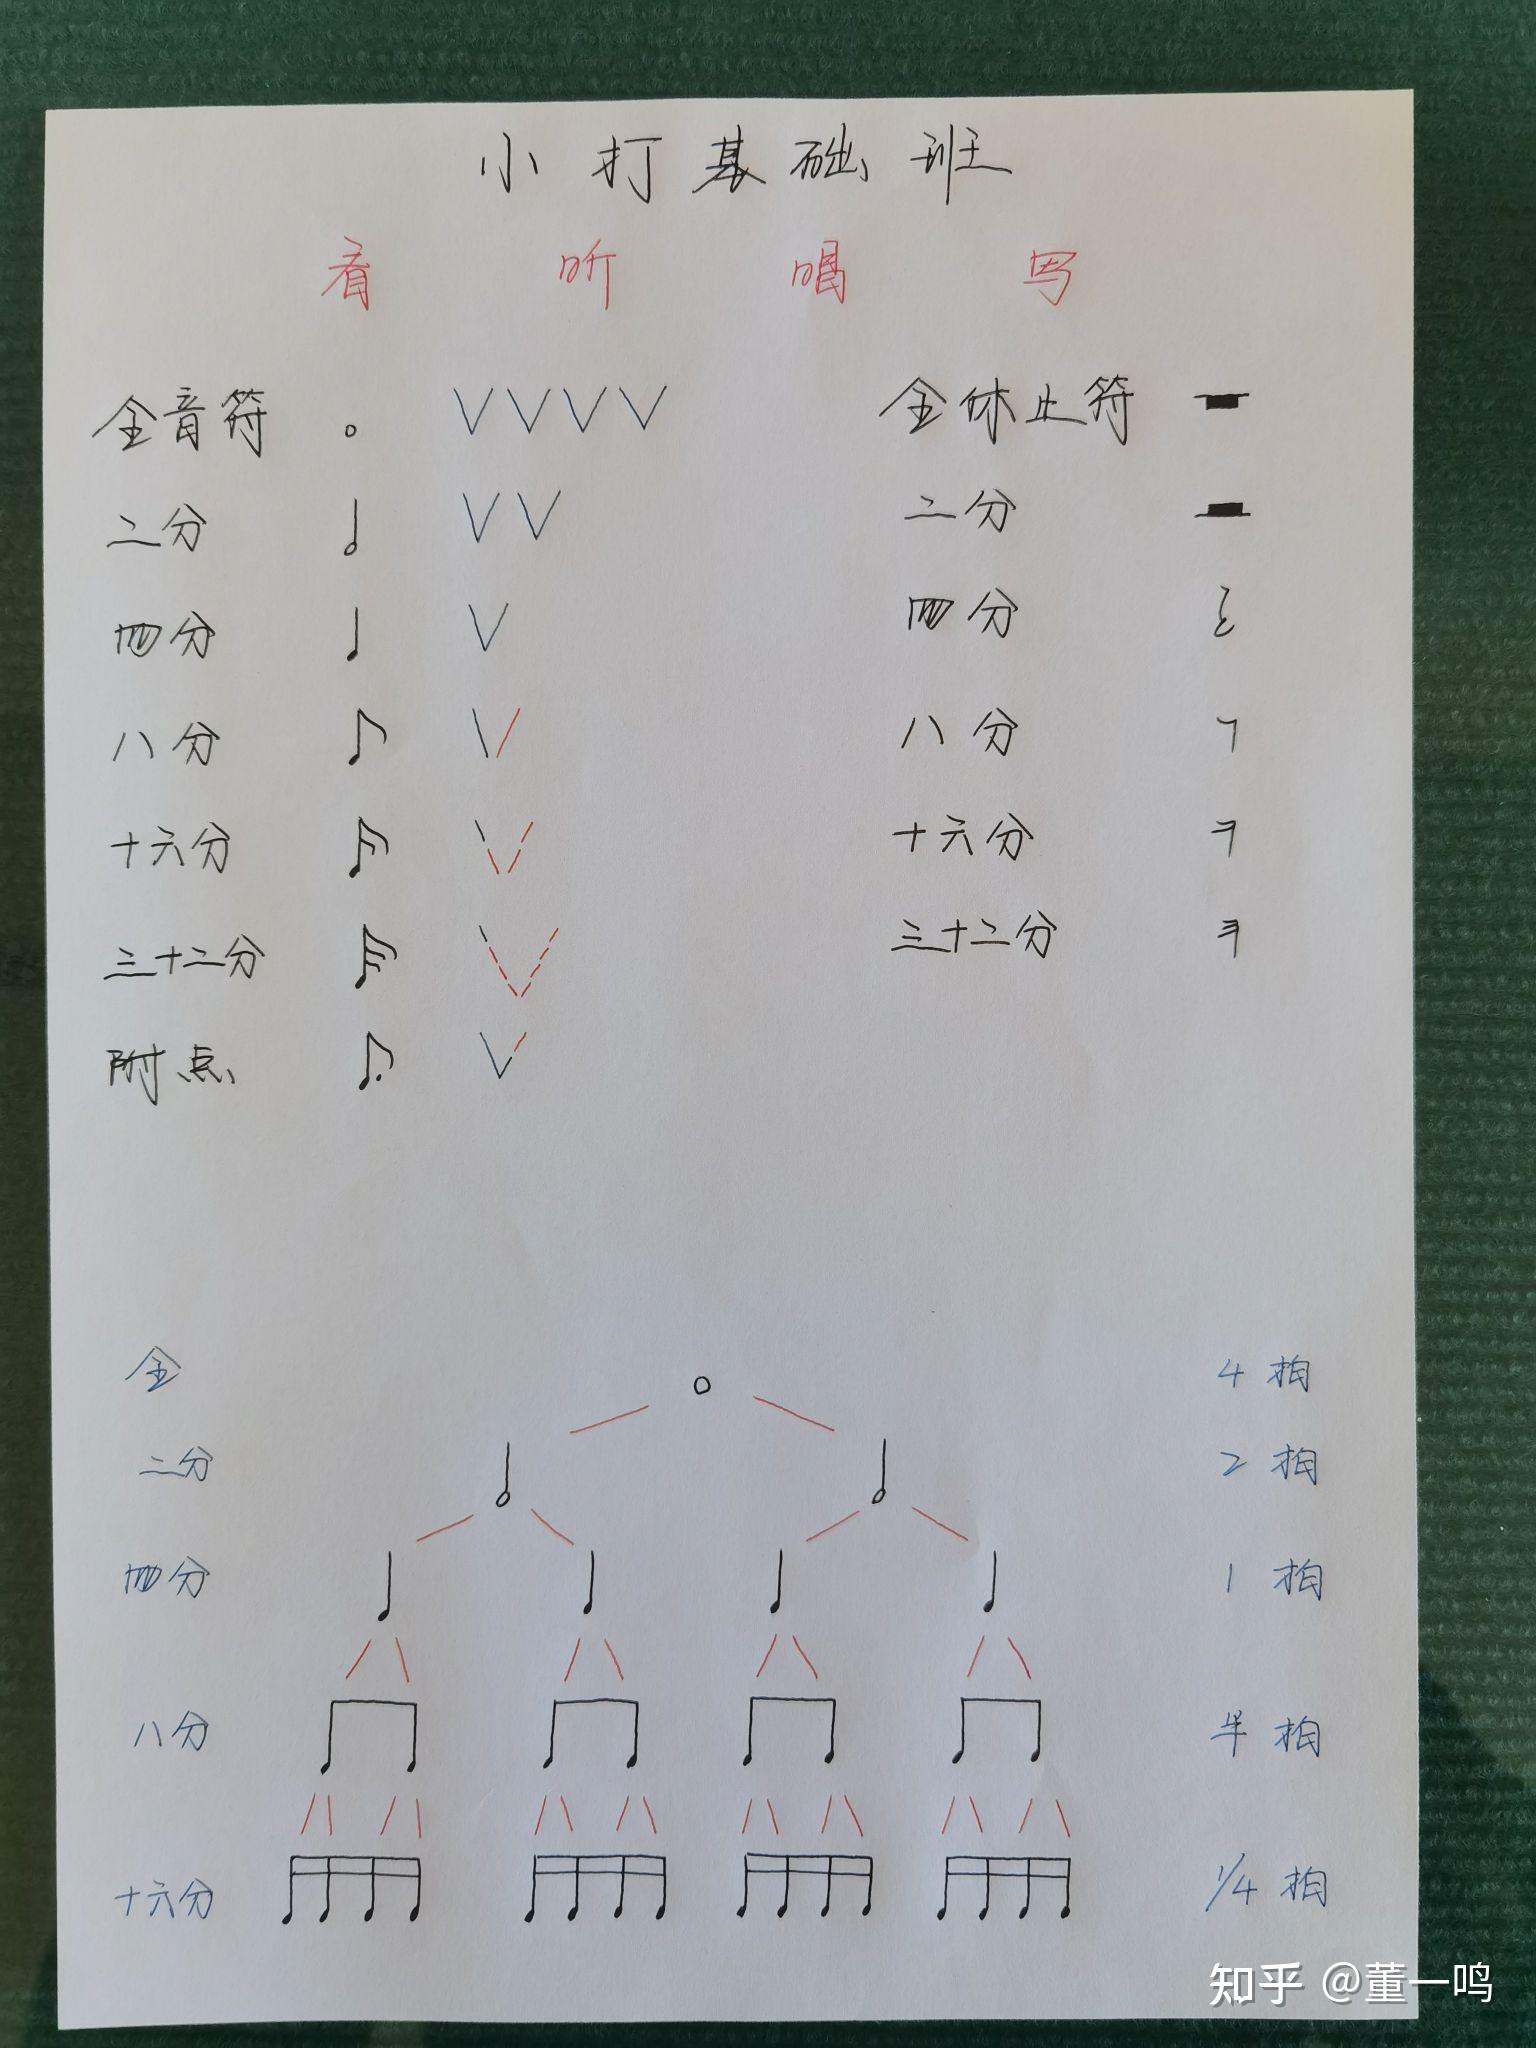 小打基础班
看 听 唱 写
全音符 全休止符
二分 二分
四分 四分
八分 八分
十六分 十六分
三十二分 三十二分
附点
全 4拍
二分 2拍
四分 1拍
八分 半拍
十六分 1/4拍
知乎 @董一鸣